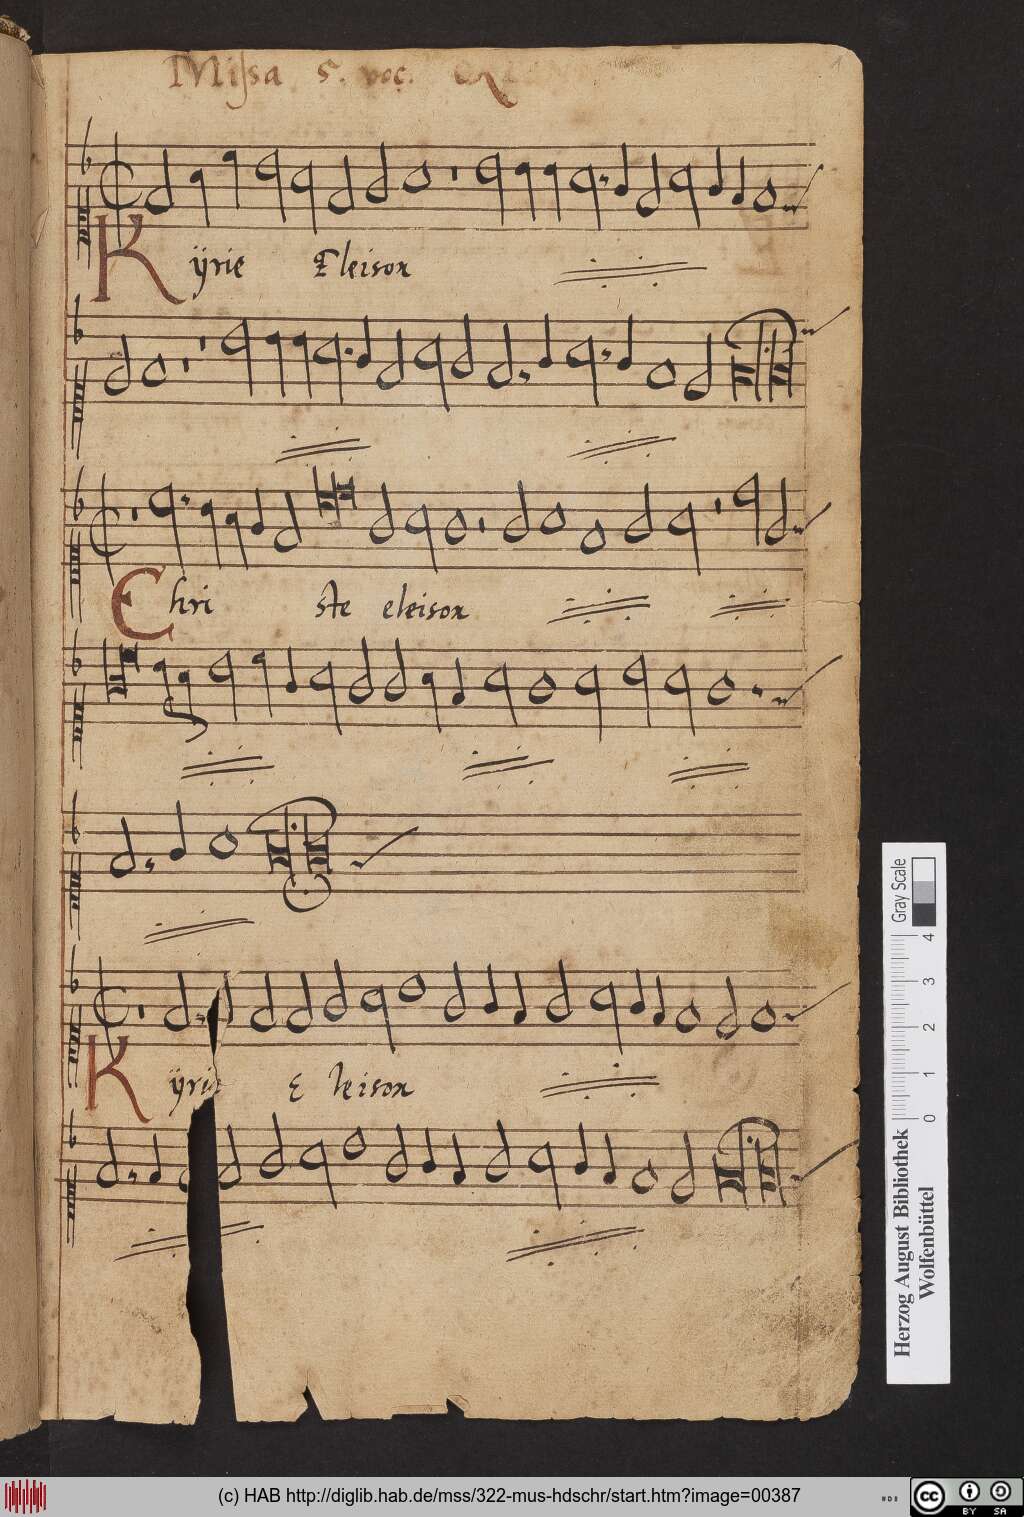 Missa 5. voc.
1
Kÿrie Eleison
Christe eleison
Kÿrie Eleison
Gray Scale
0 1 2 3 4
Herzog August Bibliothek
Wolfenbüttel
(c) HAB http://diglib.hab.de/mss/322-mus-hdschr/start.htm?image=00387
cc BY SA